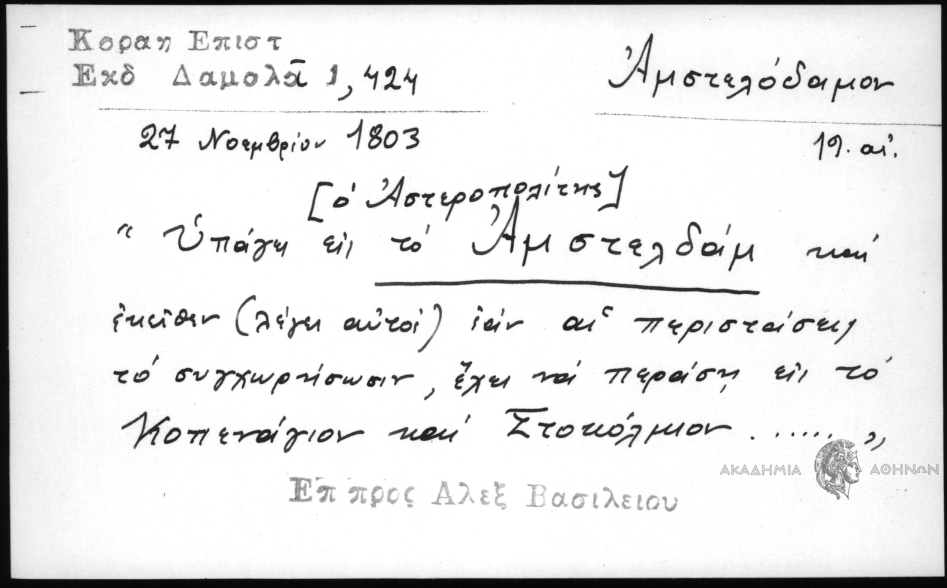 Κοραη Επιστ
Εκδ Δαμαλᾶ 1,424
Ἀμστελόδαμον
27 Νοεμβρίου 1803
19. αἰ.
[ὁ Ἀστεροπολίτης]
“ Ὑπάγει εἰς τό Ἀμστελδάμ καί
ἐκεῖθεν (λέγει αὐτοί) ἐάν αἱ περιστάσεις
τό συγχωρήσωσιν, ἔχει νά περάσῃ εἰς τό
Κοπενάγιον καί Στοκόλμιον ...... ”
ΑΚΑΔΗΜΙΑ ΑΘΗΝΩΝ
Επ προς Αλεξ Βασιλειου